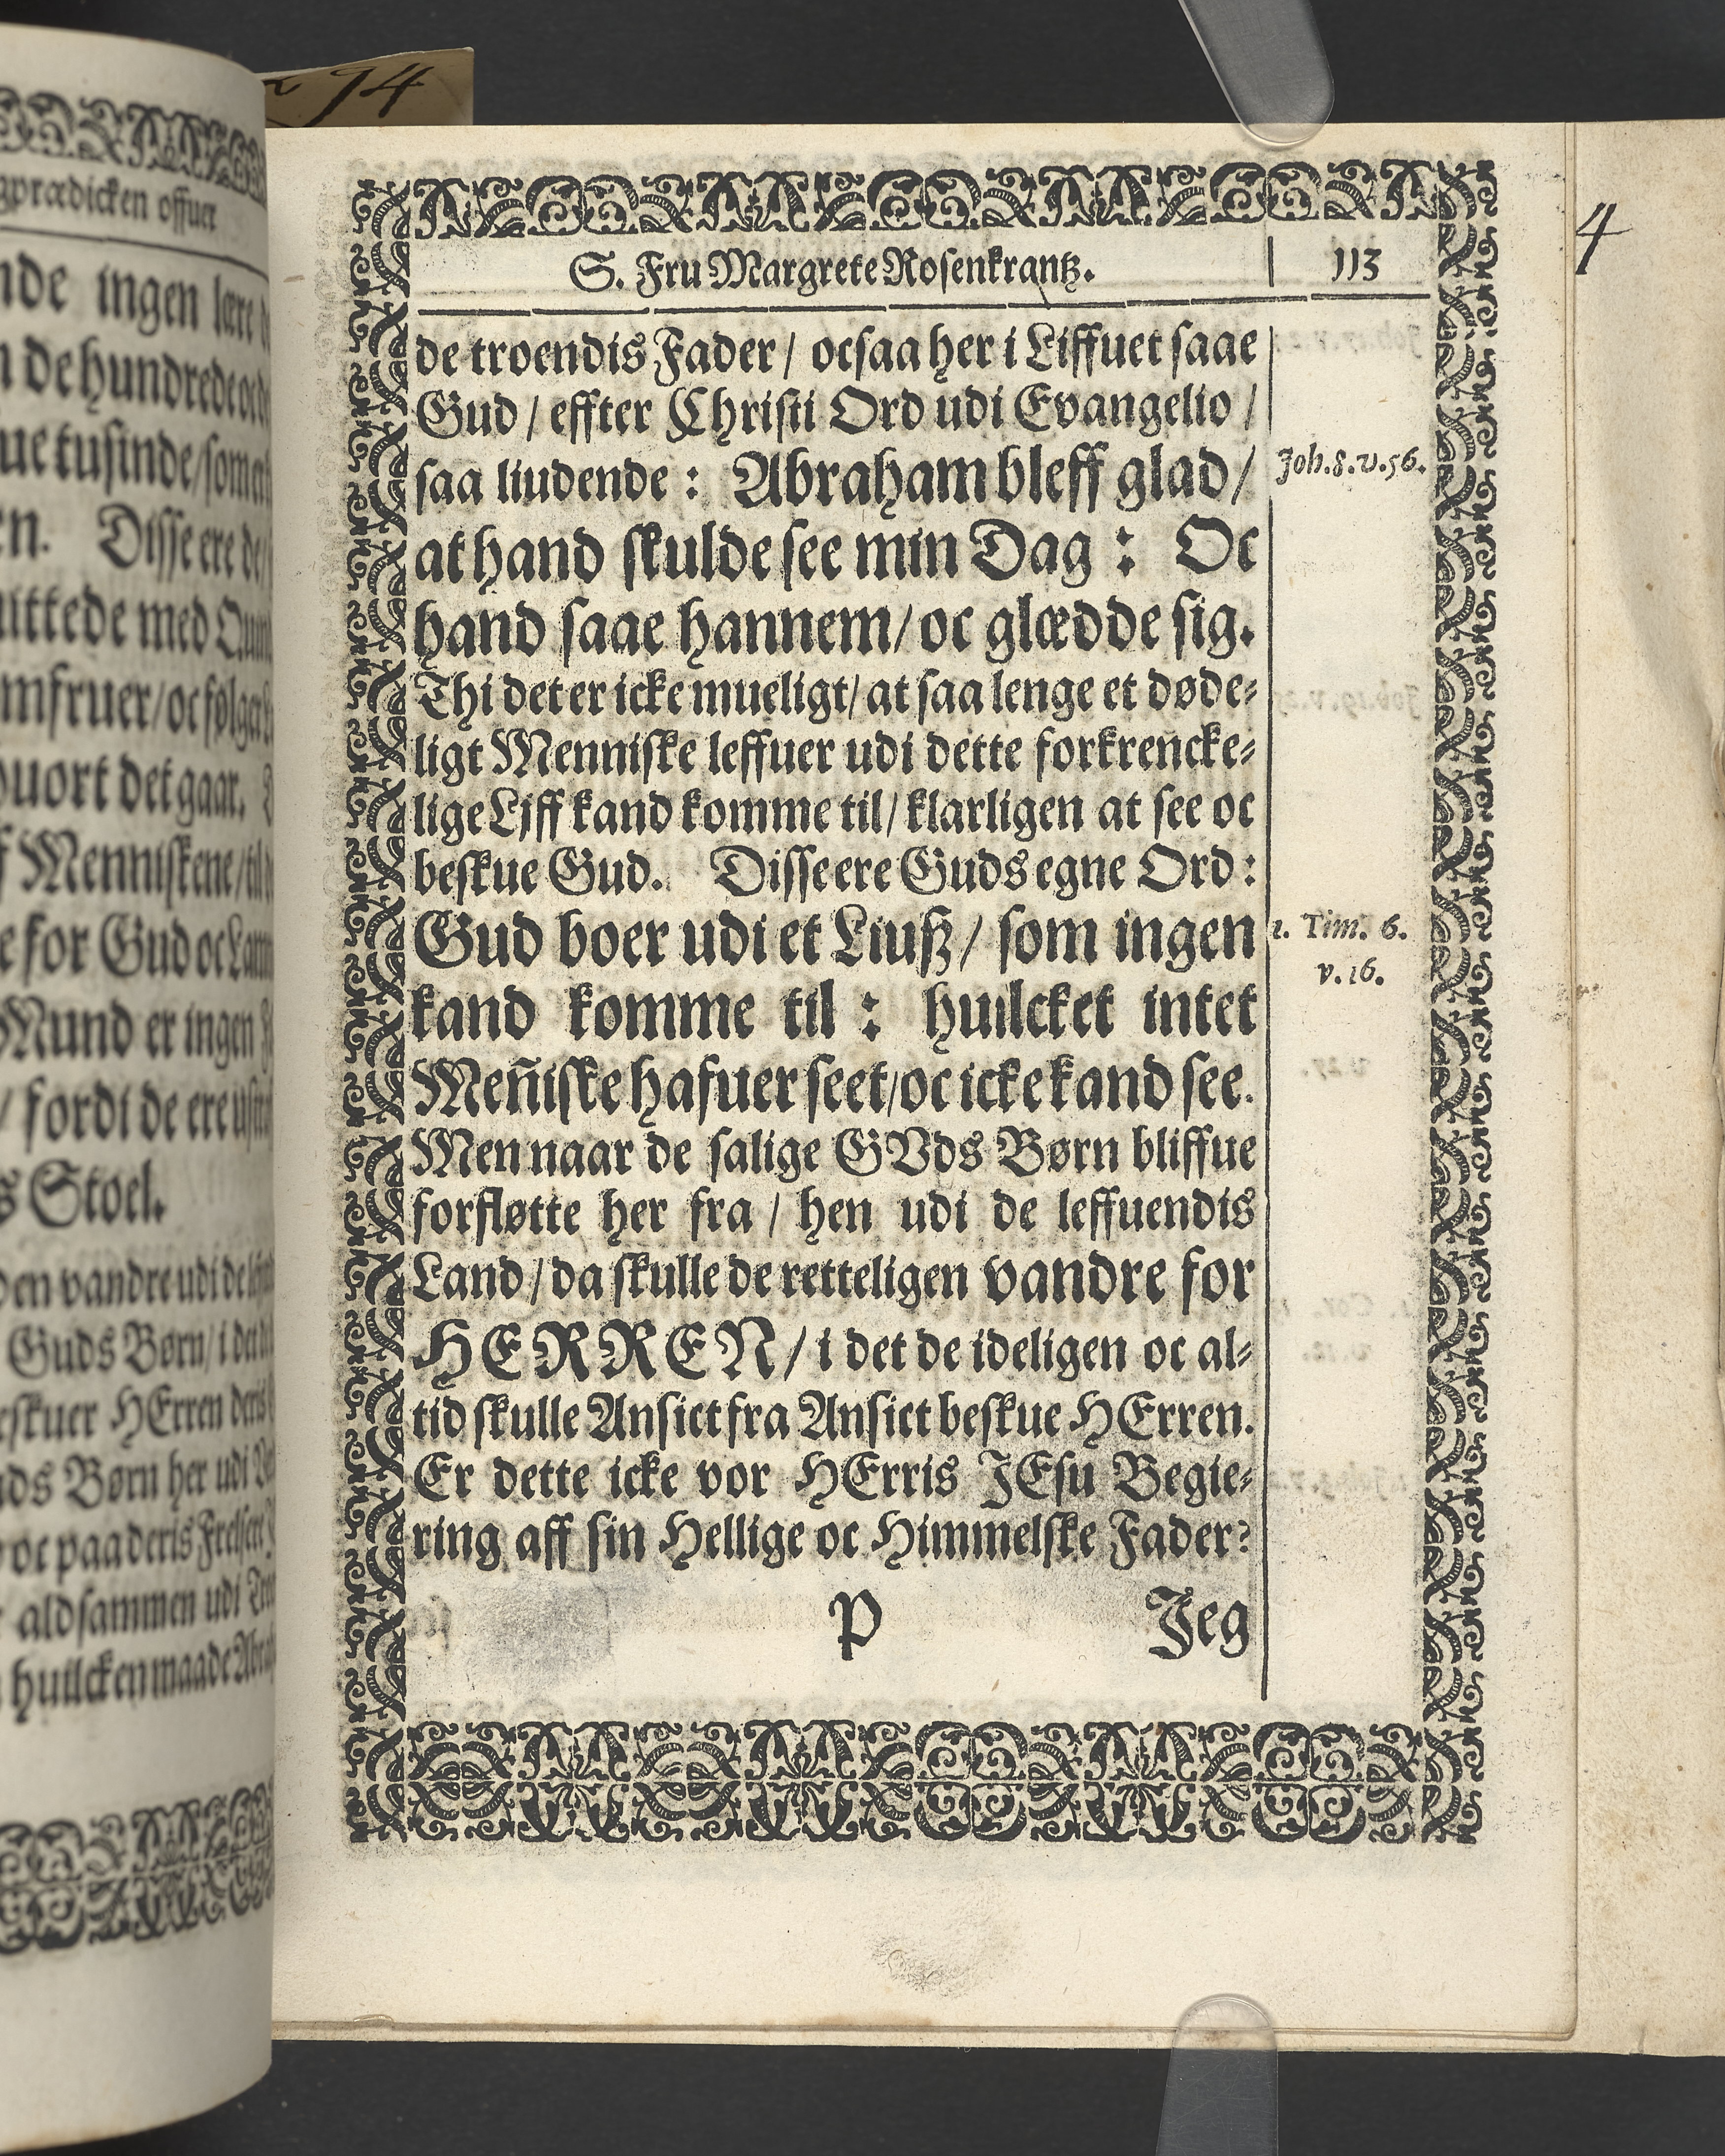 94
4
gprædicken offuer
nde ingen lære
n de hundrede oc
ue tusinde / som
en. Disse ere de
ittede med
mfruer / oc følger
huort det gaar.
f Menniskene / til
e for Gud oc Lam
Mund er ingen
/ fordi de ere
s Stoel.
den vandre udi de
Guds Børn / i det
eskuer HErren deris
ds Børn her udi
oc paa deris Frelsere
aldsammen udi
huilcken maade
S. Fru Margrete Rosenkrantz. 113
de troendis Fader / ocsaa her i Liffuet saae
Gud / effter Christi Ord udi Evangelio /
saa liudende : Abraham bleff glad /
Joh. 8. v. 56.
at hand skulde see min Dag : Oc
hand saae hannem / oc glædde sig.
Thi det er icke mueligt / at saa lenge et døde-
ligt Menniske leffuer udi dette forkrencke-
lige Liff kand komme til / klarligen at see oc
beskue Gud. Disse ere Guds egne Ord :
Gud boer udi et Liuß / som ingen
1. Tim. 6.
v. 16.
kand komme til : huilcket intet
Meñiske hafuer seet / oc icke kand see.
Men naar de salige GVds Børn bliffue
forfløtte her fra / hen udi de leffuendis
Land / da skulle de retteligen vandre for
HERREN / i det de ideligen oc al-
tid skulle Ansict fra Ansict beskue HErren.
Er dette icke vor HErris JEsu Begie-
ring aff sin Hellige oc Himmelske Fader?
P Jeg